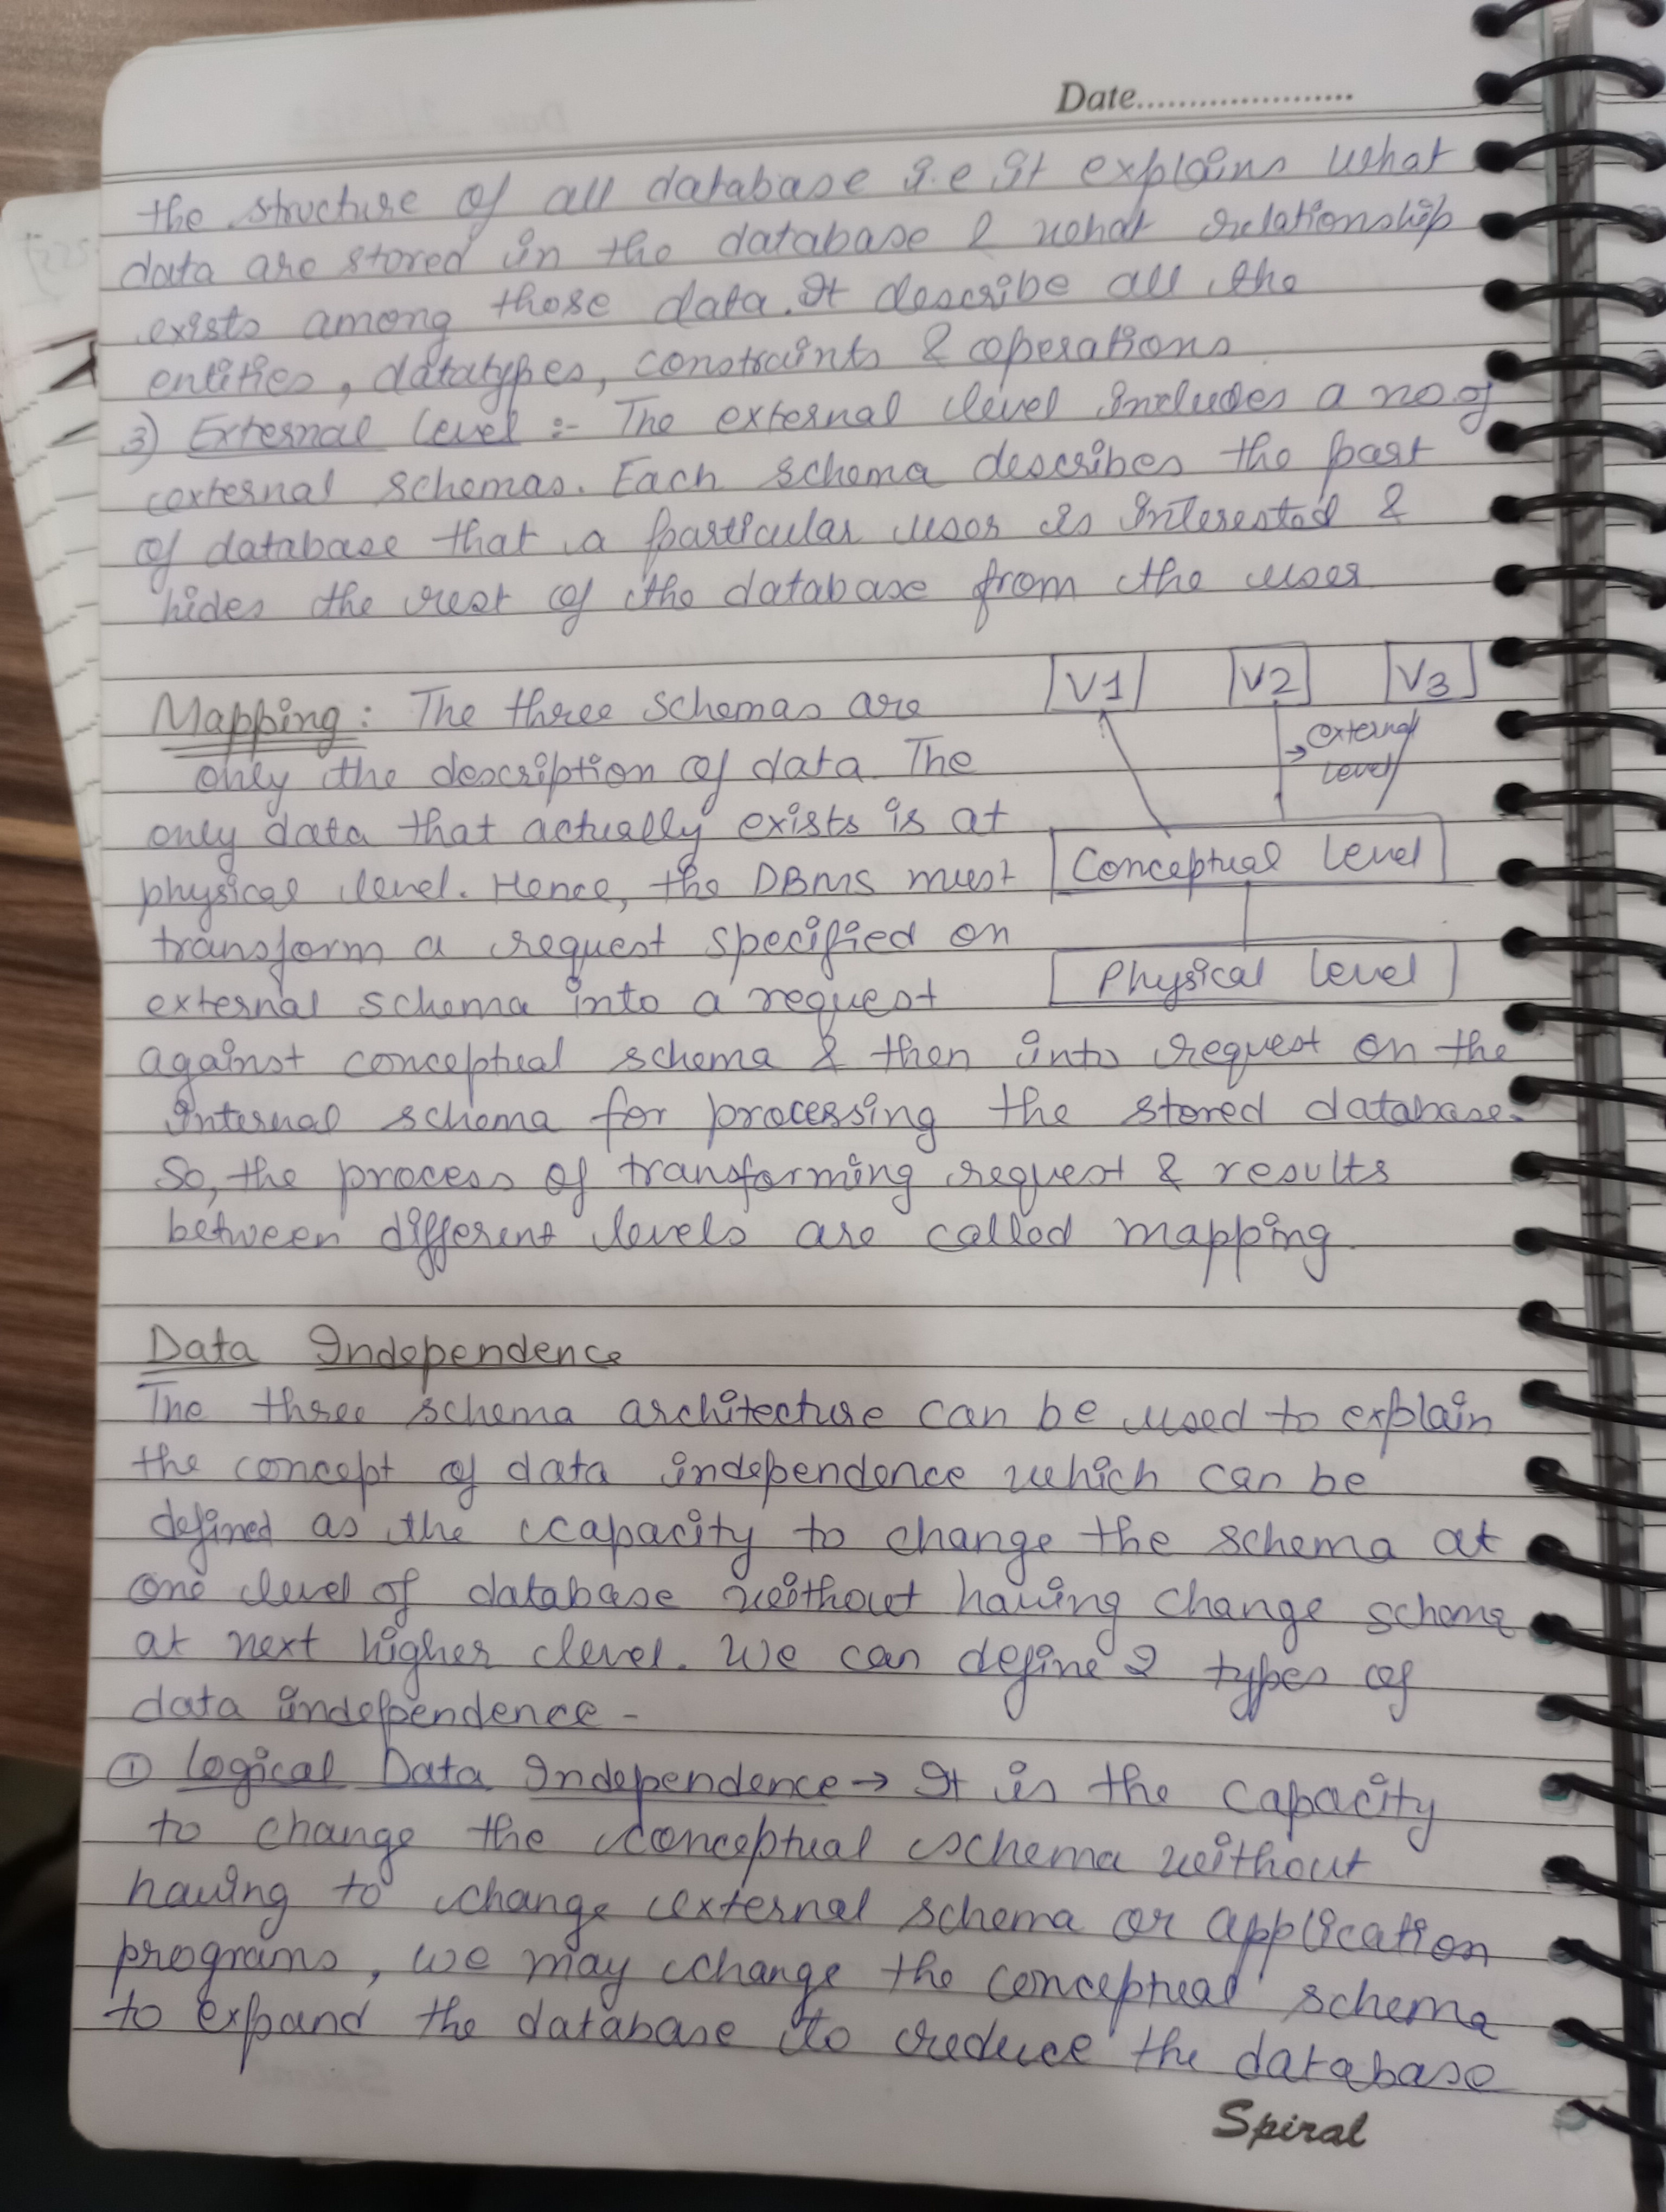 Date......................
the structure of all database i.e it explains what
data are stored in the database & what relationship
exists among those data. It describe all the
entities, datatypes, constraints & operations
3) External level :- The external level includes a no. of
external schemas. Each schema describes the part
of database that a particular user is interested &
hides the rest of the database from the user
V1 V2 V3
Mapping: The three schemas are
external
level
only the description of data. The
only data that actually exists is at
Conceptual level
physical level. Hence, the DBMS must
transform a request specified on
Physical level
external schema into a request
against conceptual schema & then into request on the
internal schema for processing the stored database.
So, the process of transforming request & results
between different levels are called mapping.
Data Independence
The three schema architecture can be used to explain
the concept of data independence which can be
defined as the capacity to change the schema at
one level of database without having change schema
at next higher level. We can define 2 types of
data independence -
① Logical Data Independence → It is the capacity
to change the conceptual schema without
having to change external schema or application
programs, we may change the conceptual schema
to expand the database to reduce the database
Spiral